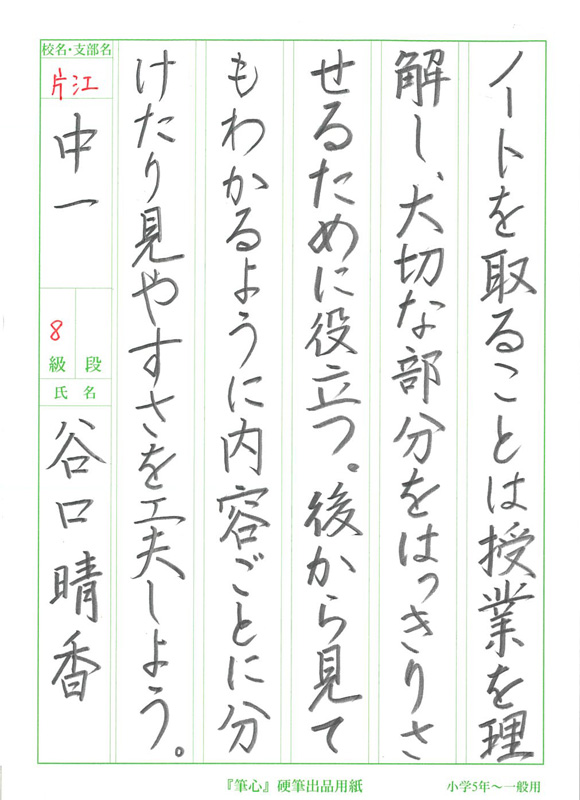 ノートを取ることは授業を理
解し、大切な部分をはっきりさ
せるために役立つ。後から見て
もわかるように内容ごとに分
けたり見やすさを工夫しよう。
校名・支部名
片江
中一
段
8級
氏名
谷口晴香
『筆心』硬筆出品用紙
小学5年〜一般用